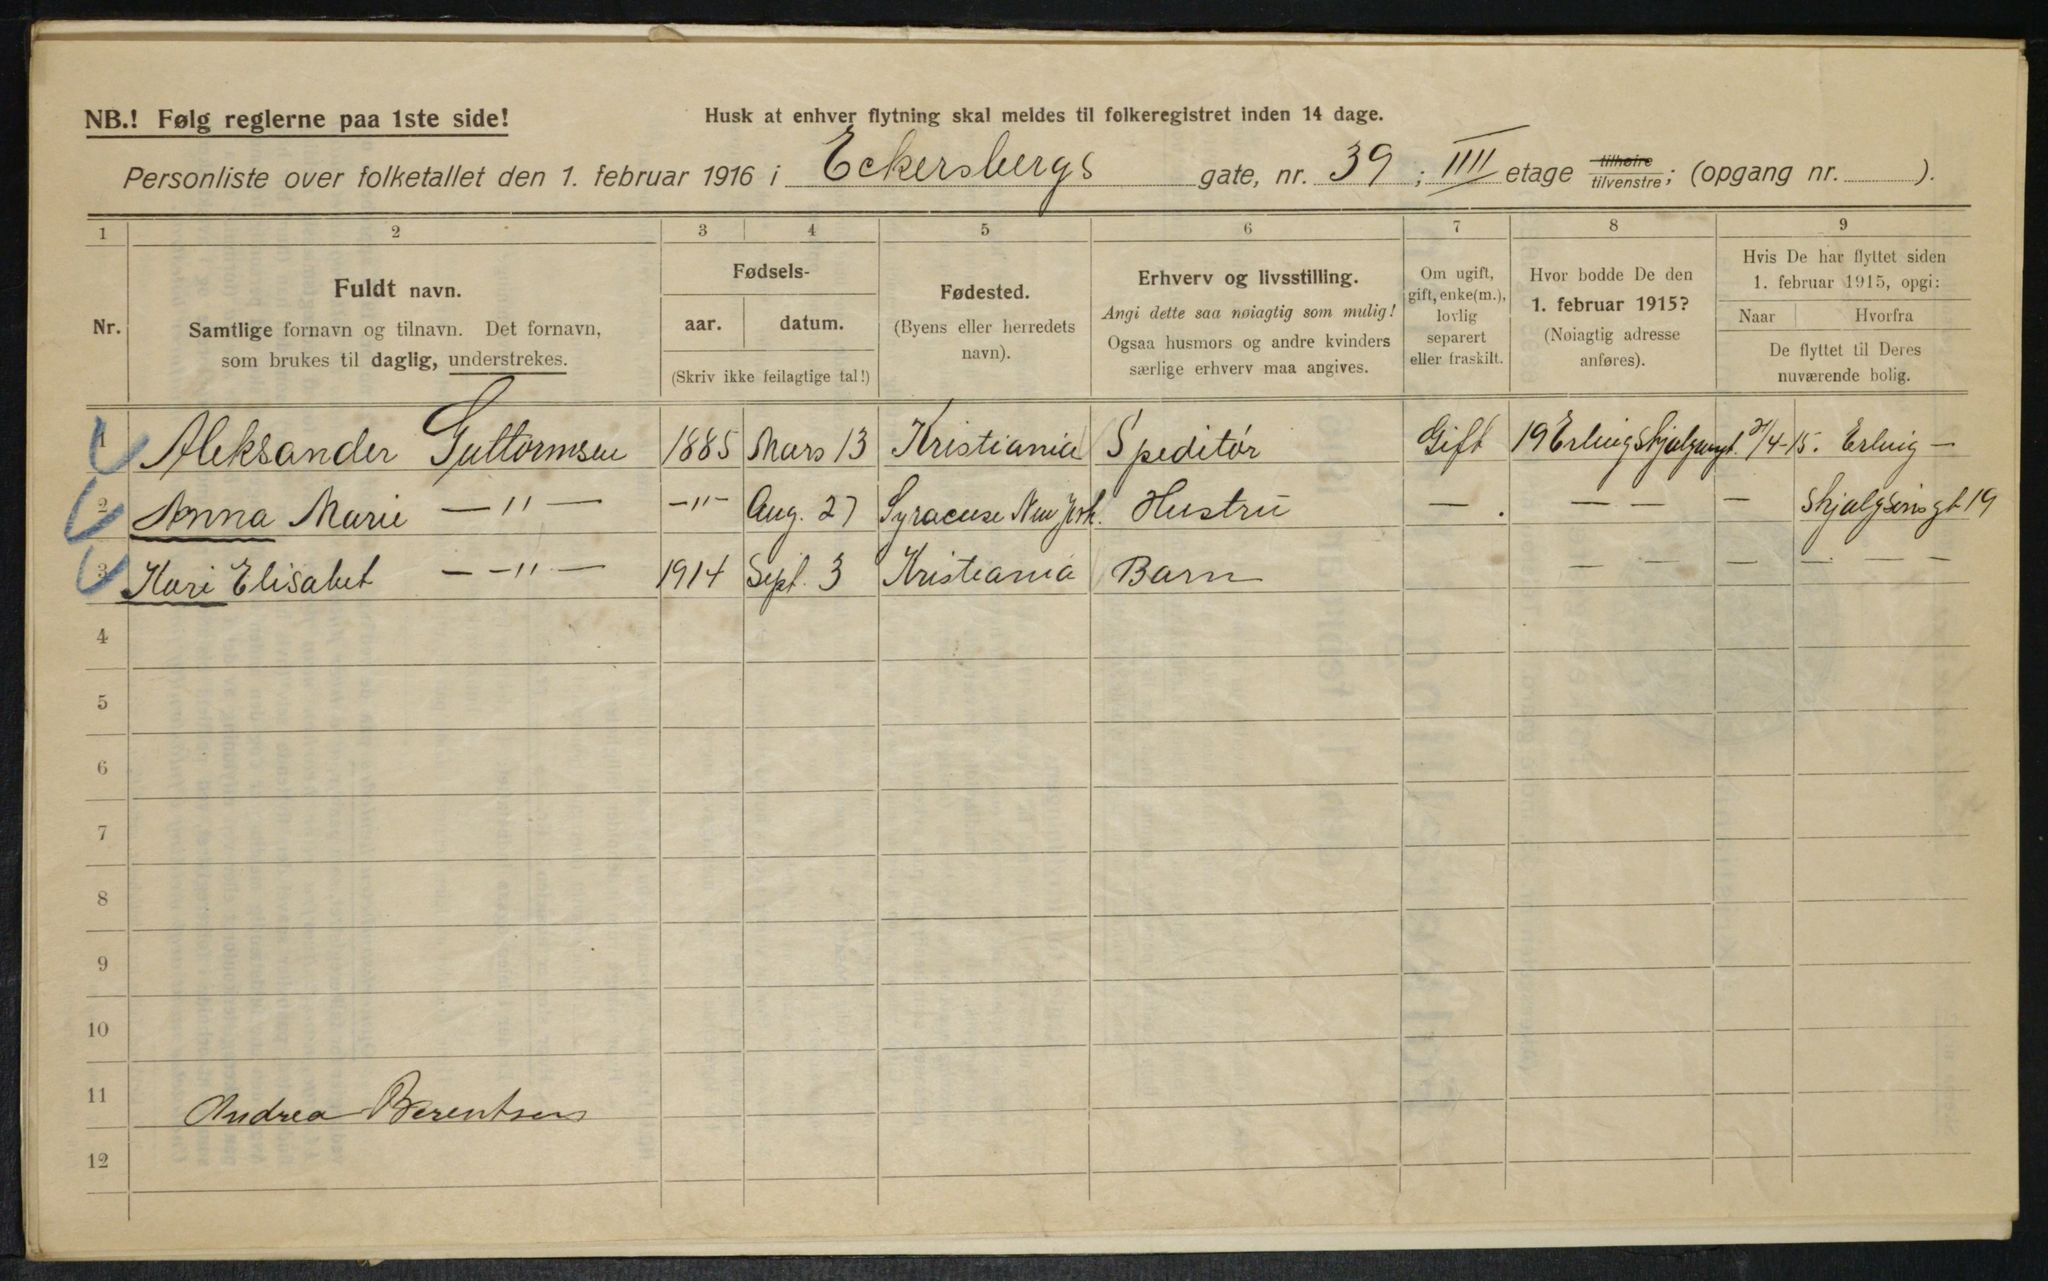 NB.! Følg reglerne paa 1ste side!
Husk at enhver flytning skal meldes til folkeregistret inden 14 dage.
Personliste over folketallet den 1. februar 1916 i Eckersbergs gate, nr. 39; IIII etage tilhøire tilvenstre; (opgang nr. ).
1 2 3 4 5 6 7 8 9
Nr.
Fuldt navn.
Samtlige fornavn og tilnavn. Det fornavn,
som brukes til daglig, understrekes.
Fødsels-
aar. datum.
(Skriv ikke feilagtige tal!)
Fødested.
(Byens eller herredets
navn).
Erhverv og livsstilling.
Angi dette saa nøiagtig som mulig!
Ogsaa husmors og andre kvinders
særlige erhverv maa angives.
Om ugift,
gift, enke(m.),
lovlig
separert
eller fraskilt.
Hvor bodde De den
1. februar 1915?
(Nøiagtig adresse
anføres).
Hvis De har flyttet siden
1. februar 1915, opgi:
Naar Hvorfra
De flyttet til Deres
nuværende bolig.
1 Aleksander Guttormsen 1885 Mars 13 Kristiania Speditør Gift 19 Erling Skjalgsøngt. /4-15. Erling —
2 Anna Marie — " — — " — Aug. 27 Syracuse New York. Hustru — . — — — Skjalgsønsgt 19
3 Kari Elisabet — — " — 1914 Sept. 3 Kristiania Barn — — — — — —
4
5
6
7
8
9
10
11 Andrea Berentsen
12